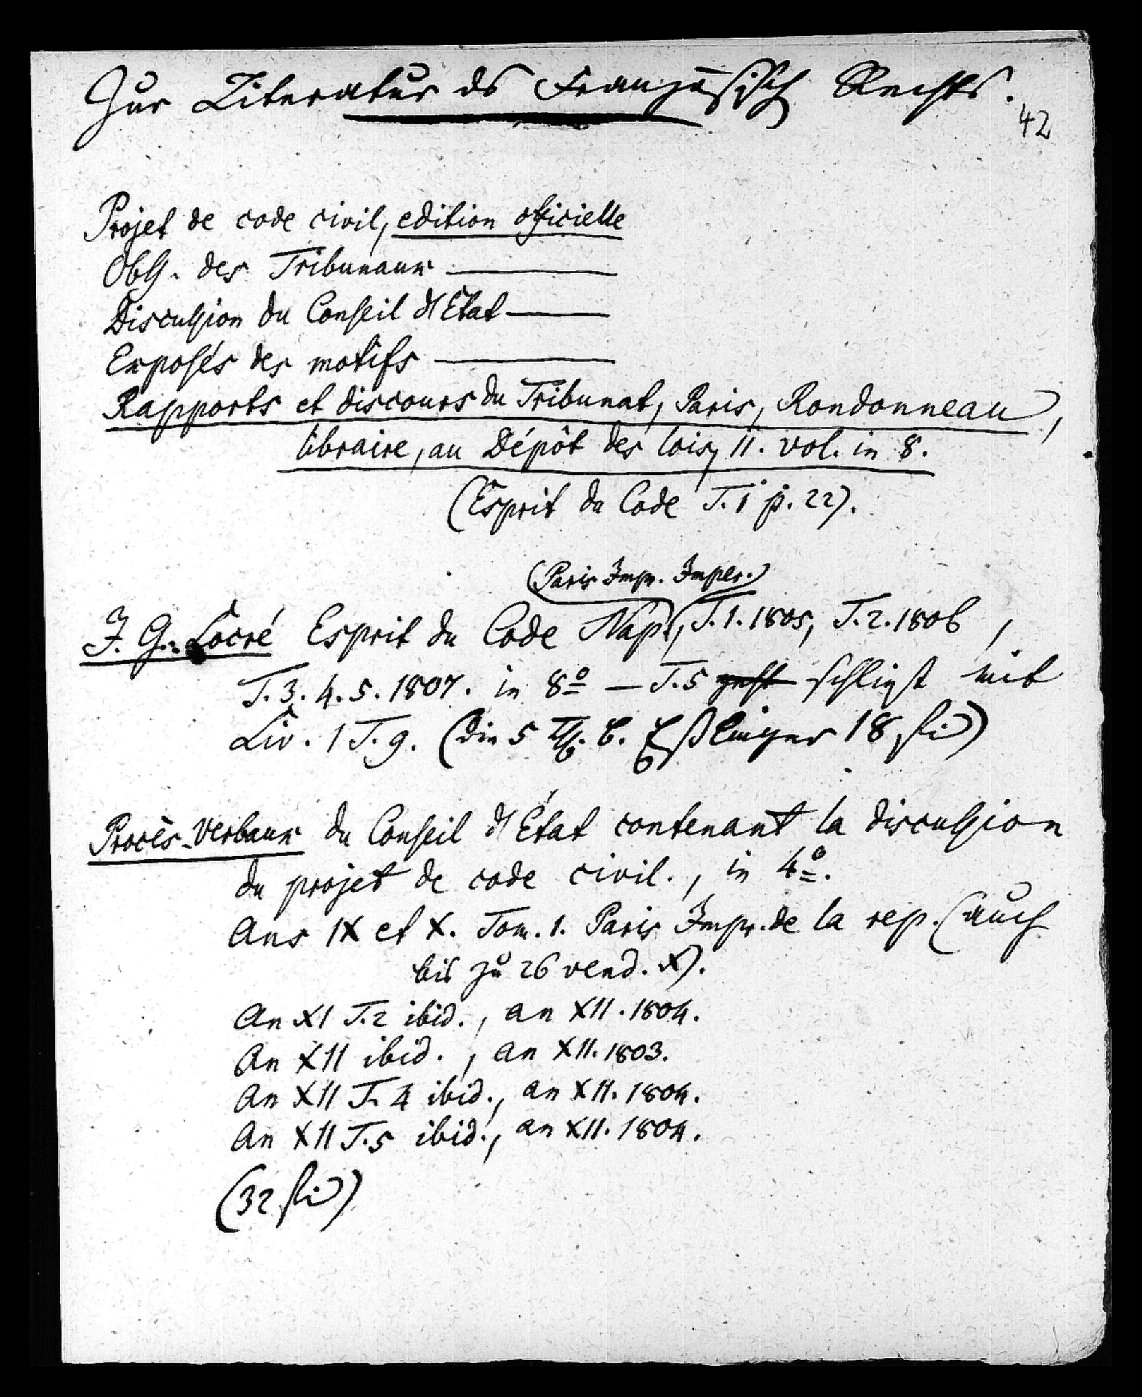 Zur Literatur ds Französisch Rechts.
42
Projet de code civil, edition officielle
Obss. des Tribunaux ———
Discussion du Conseil d'Etat ———
Exposés des motifs ———
Rapports et discours du Tribunat, Paris, Rondonneau,
libraire, au Dépôt des lois, 11. vol. in 8.
(Esprit du Code T. 1 p. 22).
(Paris Impr. Imper.)
J. G. Locré Esprit du Code Nap., T. 1. 1805, T. 2. 1806,
T. 3. 4. 5. 1807. in 8º — T. 5 geht schliest mit
Liv. 1 T. 9. (die 5 Th. b. Eßlinger 18 fl)
Procès-verbaux du Conseil d'État contenant la discussion
du projet de code civil., in 4º.
Ans IX et X. Tom. 1. Paris Impr. de la rep. (auch
bis zu 26 vend. X).
An XI T. 2 ibid., an XII. 1804.
An XII ibid., an XII. 1803.
An XII T. 4 ibid., an XII. 1804.
An XII T. 5 ibid., an XII. 1804.
(32 fl)